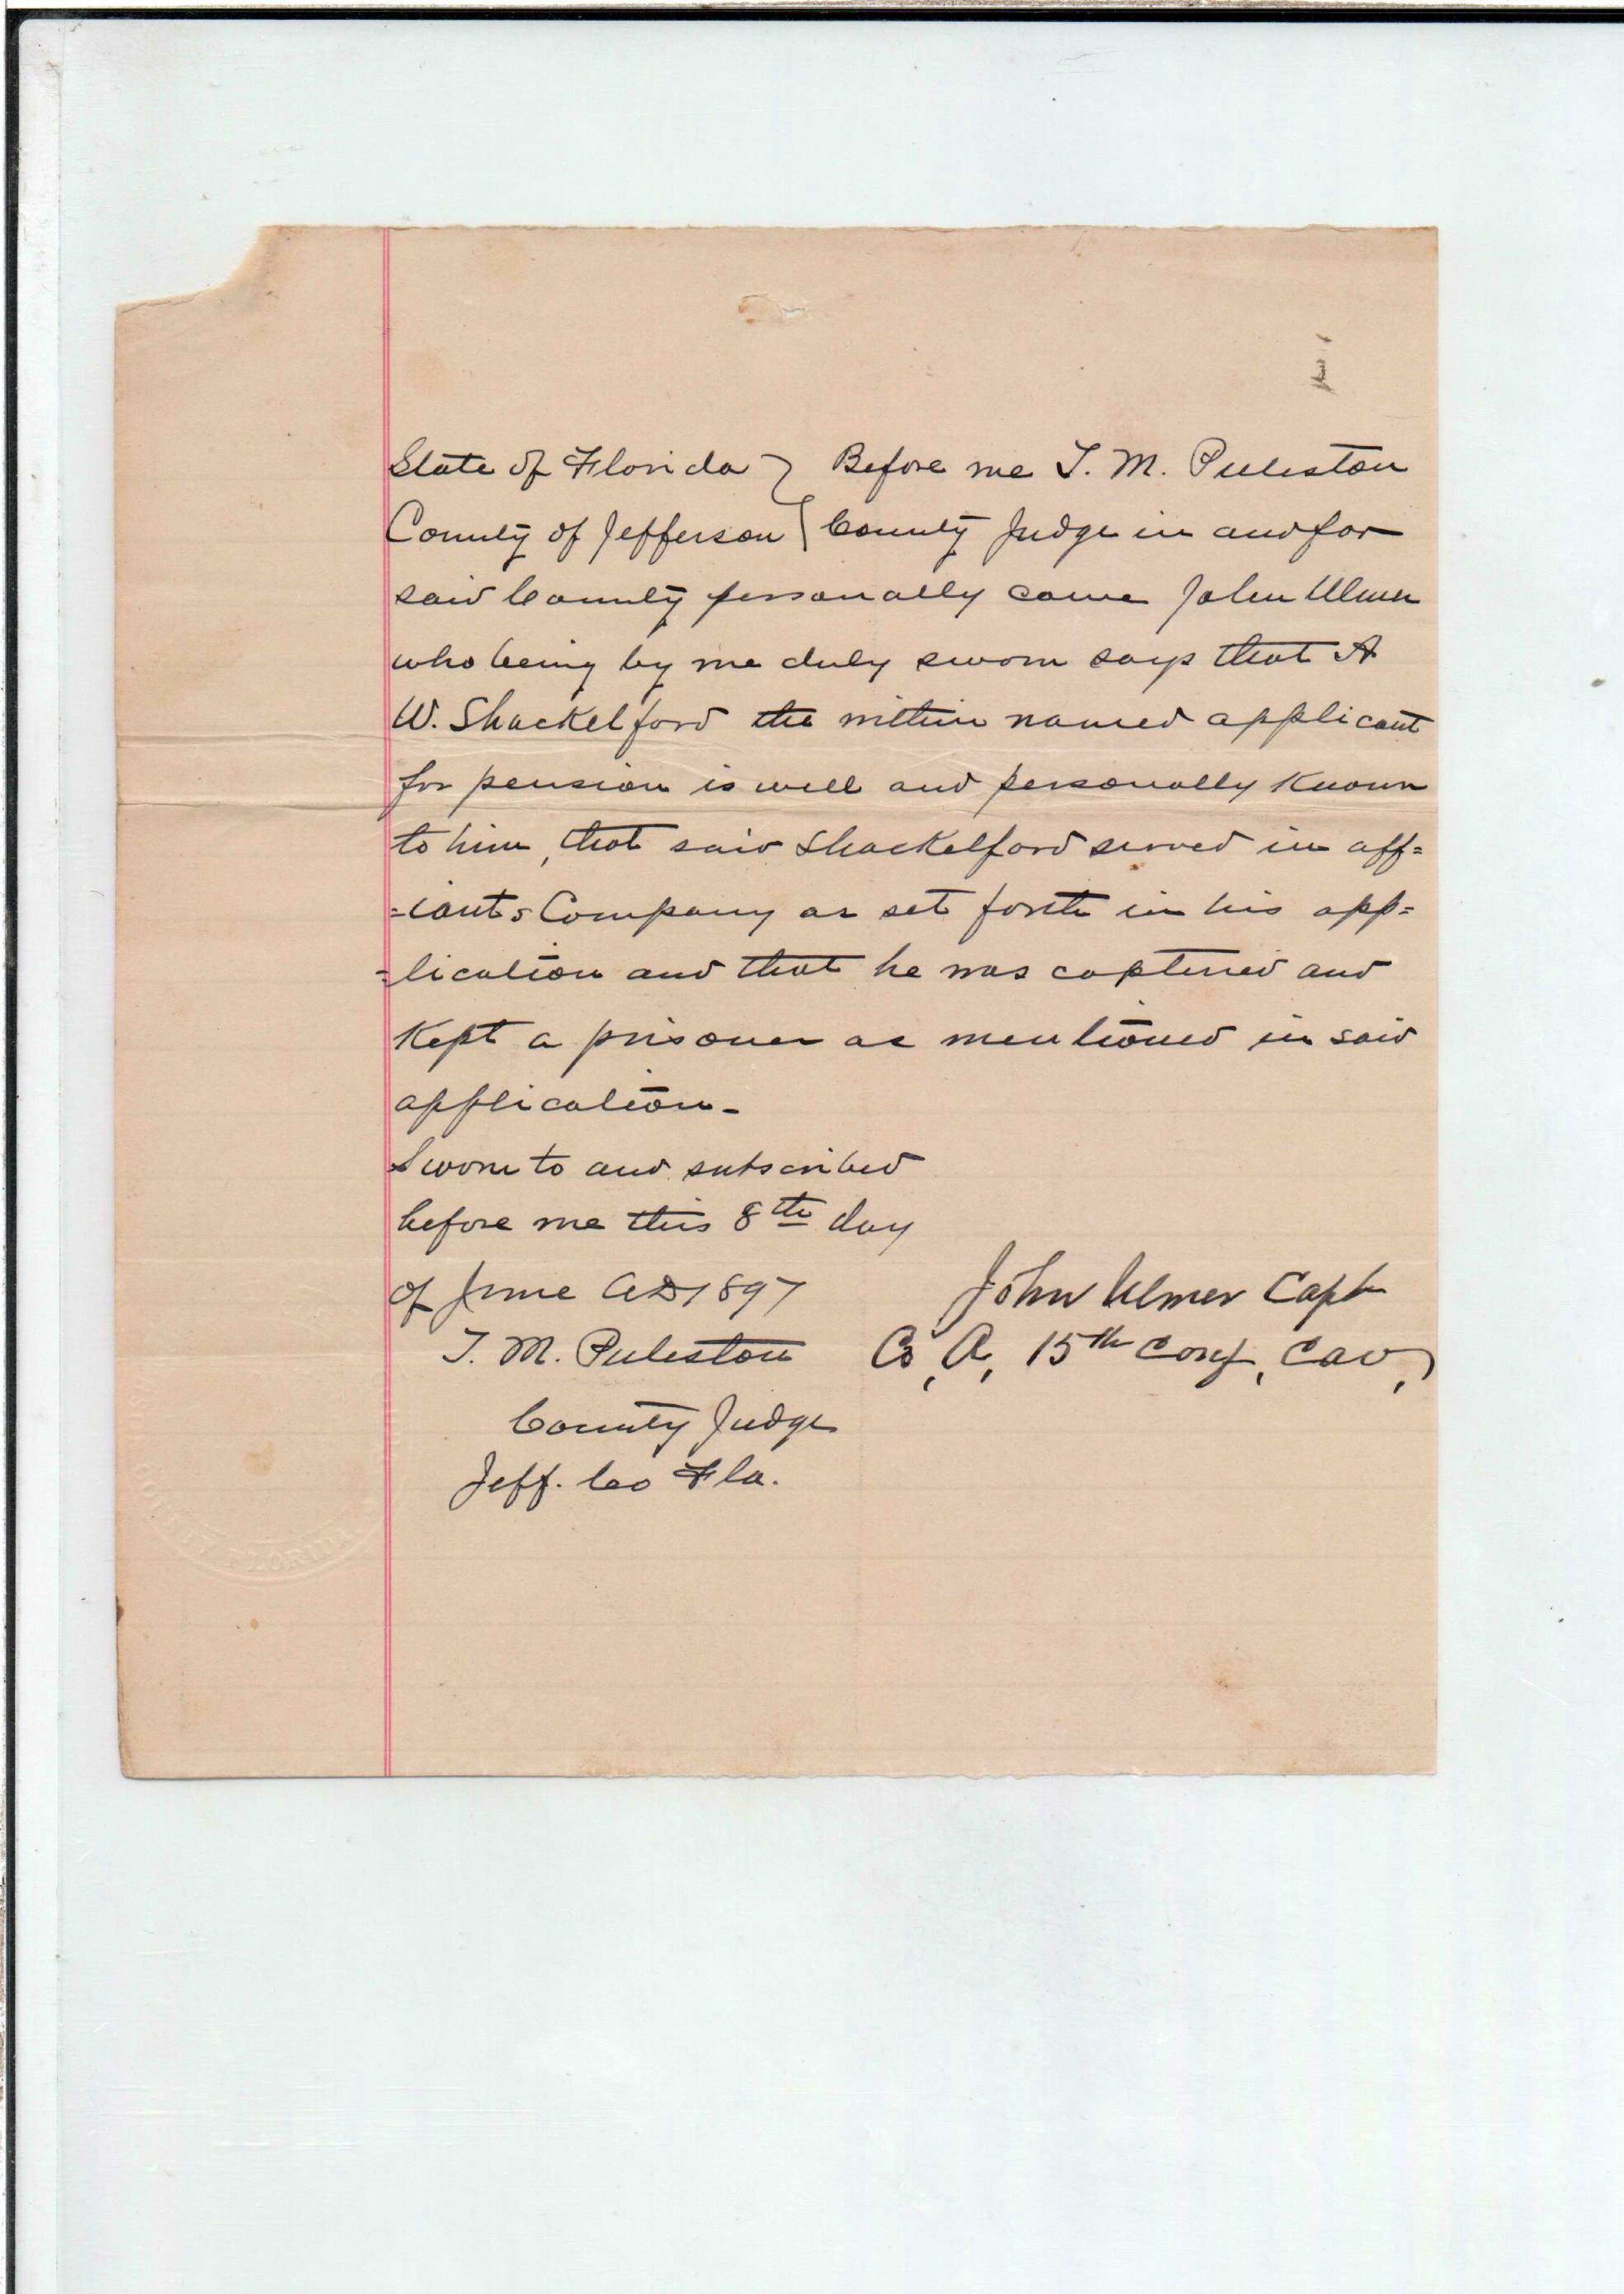 State of Florida } Before me T. M. Puleston
County of Jefferson } County Judge in and for
said County personally came John Ulmer
who being by me duly sworn says that A
W. Shackelford the within named applicant
for pension is well and personally Known
to him, that said Shackelford served in aff=
=iants Company as set forth in his app=
=lication and that he was captured and
Kept a prisoner as mentioned in said
application-
Sworn to and subscribed
before me this 8th day
of June AD 1897
John Ulmer Capt
T. M. Puleston
Co, A, 15th Conf, Cav,
County Judge
Jeff. Co Fla.
COUNTY FLORIDA